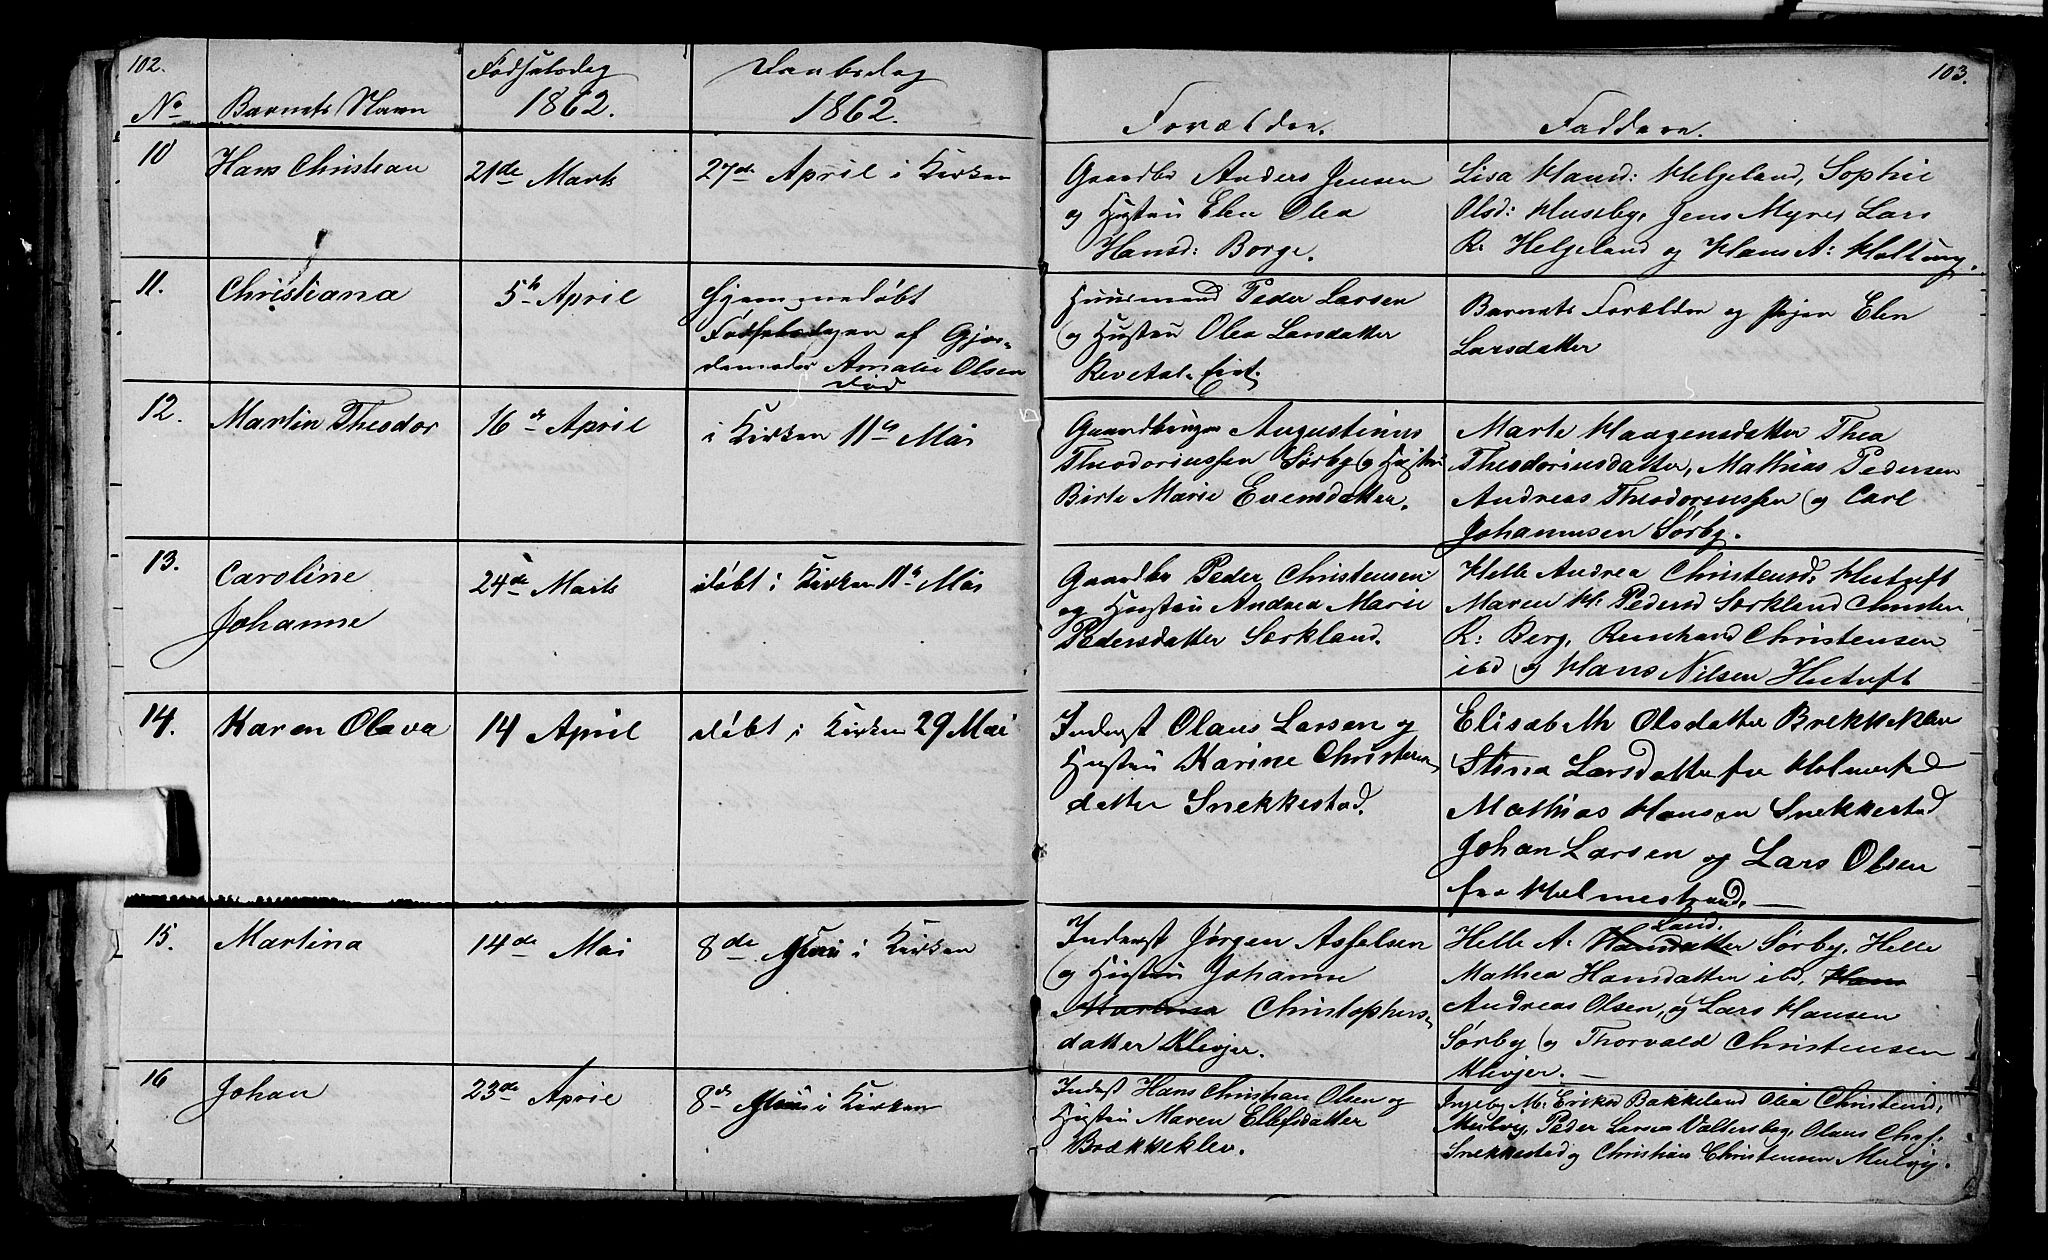 102.
No
Barnets Navn
Fødselsdag
1862.
Daabsdag
1862.
Forældre.
Faddere.
103.
10
Hans Christian
21de Marts
27de April i Kirken
Gaardbr Anders Jensen
og Hustru Elen Olea
Hansd: Borge.
Lisa Hansd: Helgeland, Sophie
Olsd: Huseby, Jens Myre, Lars
R. Helgeland og Hans A: Holtung.
11.
Christiana
5te April
Hjemmedøbt
Fødselsdagen af Gjor-
demoder Amalie Olsen
død
Huusmand Peder Larsen
og Hustru Olea Larsdatter
Revetal-eiet.
Barnets Forældre og Pigen Elen
Larsdatter
12.
Martin Theodor
16de April
i Kirken 11te Mai
Gaardbruger Augustinus
Theodoriussen Sørby og Hustru
Birte Marie Evensdatter.
Marte Haagensdatter Thea
Theodoriusdatter, Mathias Pedersen
Andreas Theodoriussen og Carl
Johannesen Sørby.
13.
Caroline
Johanne
24de Marts
døbt i Kirken 11te Mai
Gaardbr Peder Christensen
og Hustru Andrea Marie
Pedersdatter Sørkland.
Helle Andrea Christensd: Hutuft
Maren H. Pedersd Sørkland Christen
R: Berg, Reinhard Christensen
ibd og Hans Nilsen Hutuft
14.
Karen Olava
14 April
døbt i Kirken 29 Mai
Inderst Olaus Larsen og
Hustru Karine Christens
datter Snekkestad.
Elisabeth Olsdatter Brekkeklev
Stina Larsdatter fra Holmestrd
Mathias Hansen Snekkestad
Johan Larsen og Lars Olsen
fra Holmestrand.
15.
Martina
14de Mai
8de Juni i Kirken
Inderst Jørgen Asselsen
og Hustru Johanne
Martina Christophers
datter Klevjer.
Land.
Helle A. Hansdatter Sørby, Helle
Mathea Hansdatter ibd, Hans
Andreas Olsen, og Lars Hansen
Sørby og Thorvald Christensen
Klevjer.
16
Johan
23de April
8de Juni i Kirken
Inderst Hans Christian Olsen og
Hustru Maren Ellefsdatter
Brækkeklev.
Ingeborg M. Eriksd Bakkeland Olea Christensd,
Mulvig, Peder Larsen Valtersby, Olaus Chr:
Snekkestad og Christian Christensen Mulvig.